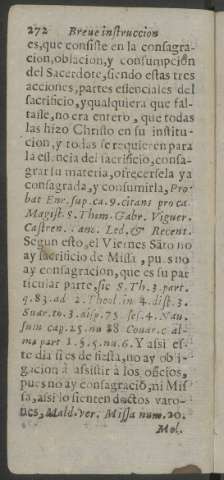 272 Breue instruccion
es, que consiste en la consagra-
cion, oblacion, y consumpciõn
del Sacerdote, siendo estas tres
acciones, partes essenciales del
sacrificio, y qualquiera que fal-
tasse, no era entero, que todas
las hizo Christo en su institu-
cion, y todas se requieren para
la essencia del sacrificio, consa-
grar su materia, ofrecersela ya
consagrada, y consumirla, Pro-
bat Enr. sup. ca. 9. citans pro ca.
Magist. S. Thom. Gabr. Viguer.
Castren. Led. & Recent.
Segun esto, el Viernes Sãto no
ay sacrificio de Missa, pues no
ay consagracion, que es su par-
ticular parte, sic S. Th. 3. part.
q. 83. ad 2. Theol. in 4. dist. 3.
Suar. to. 3. disp. 75. ses. 4. Nau.
sum cap. 25. nu 88 Couar. c al-
ma part 1. §. 5. nu. 6. Y assi es-
te dia si es de fiesta, no ay obli-
gacion à assistir à los oficios,
pues no ay consagraciõ, ni Mis-
sa, assi lo sienten doctos varo-
nes, Mald. ver. Missa num. 20.
Mol.